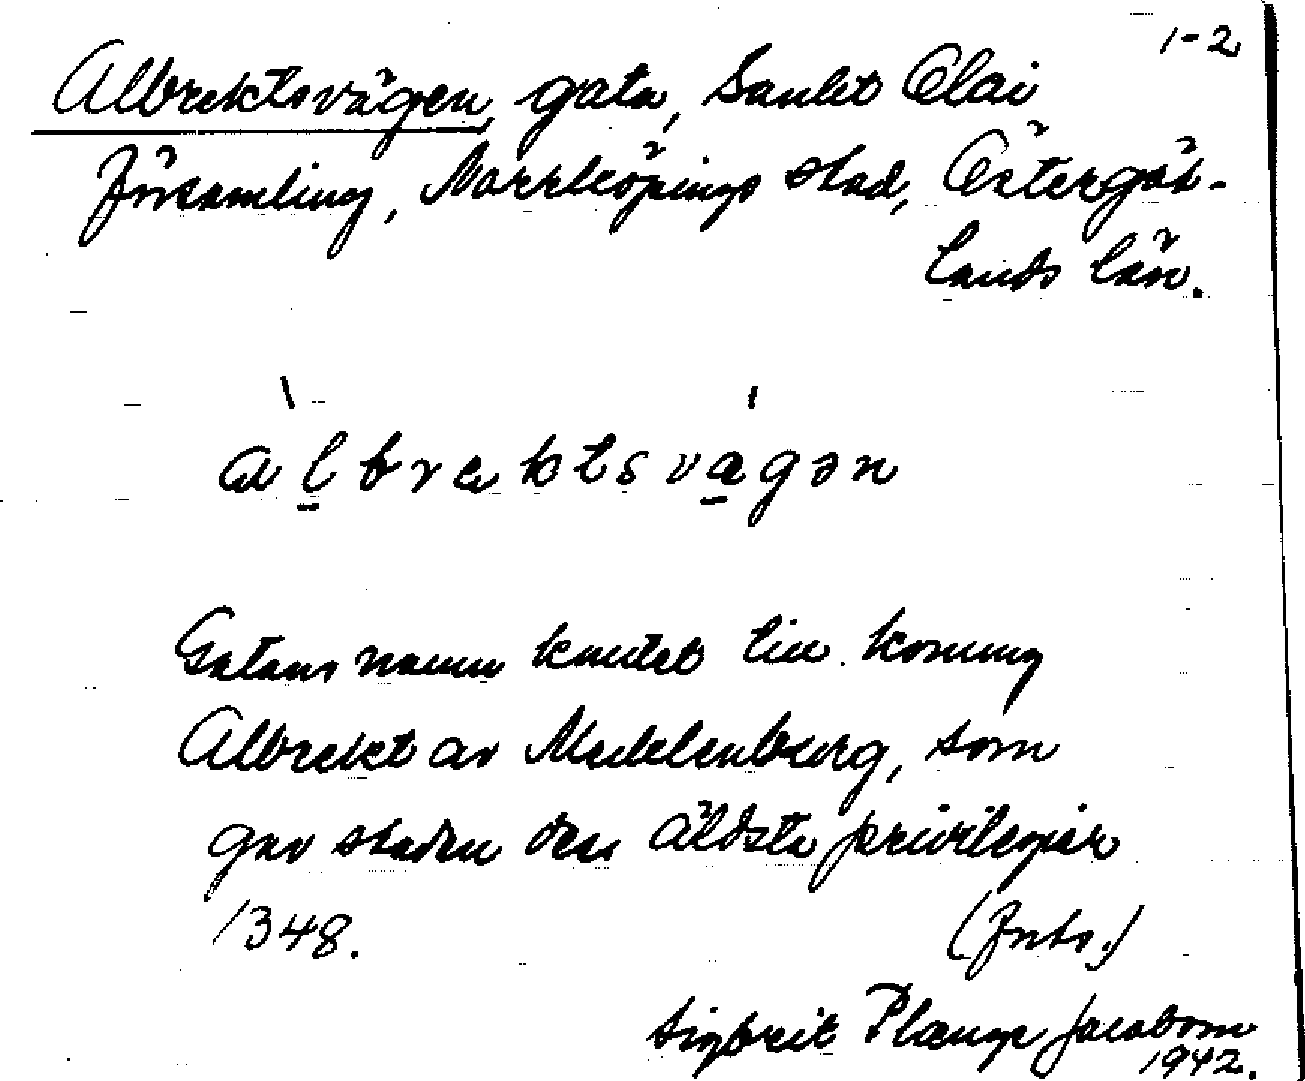 1-2
Albrektsvägen, gata, Sankt Olai
församling, Norrköpings stad, Östergöt-
lands län.
albrektsvägən
Gatans namn knutet till konung
Albrekt av Mecklenburg, som
gav staden dess äldsta privilegier
1348.
Sigbrit Plænge Jacobson
1942.